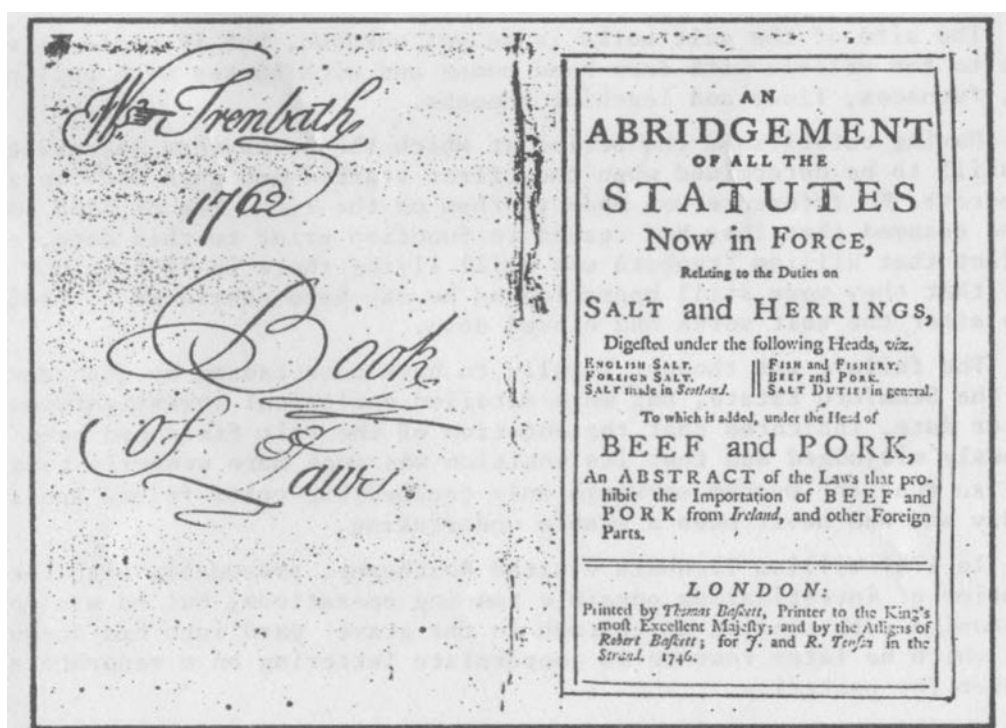 Wm Trenbath
1762
Book
of Laws
AN
ABRIDGEMENT
OF ALL THE
STATUTES
Now in FORCE,
Relating to the Duties on
SALT and HERRINGS,
Digeſted under the following Heads, viz.
ENGLISH SALT.
FOREIGN SALT.
SALT made in Scotland.
FISH and FISHERY.
BEEF and PORK.
SALT DUTIES in general.
To which is added, under the Head of
BEEF and PORK,
An ABSTRACT of the Laws that pro-
hibit the Importation of BEEF and
PORK from Ireland, and other Foreign
Parts.
LONDON:
Printed by Thomas Baſkett, Printer to the King's
moſt Excellent Majeſty; and by the Aſſigns of
Robert Baſkett; for J. and R. Tonſon in the
Strand. 1746.